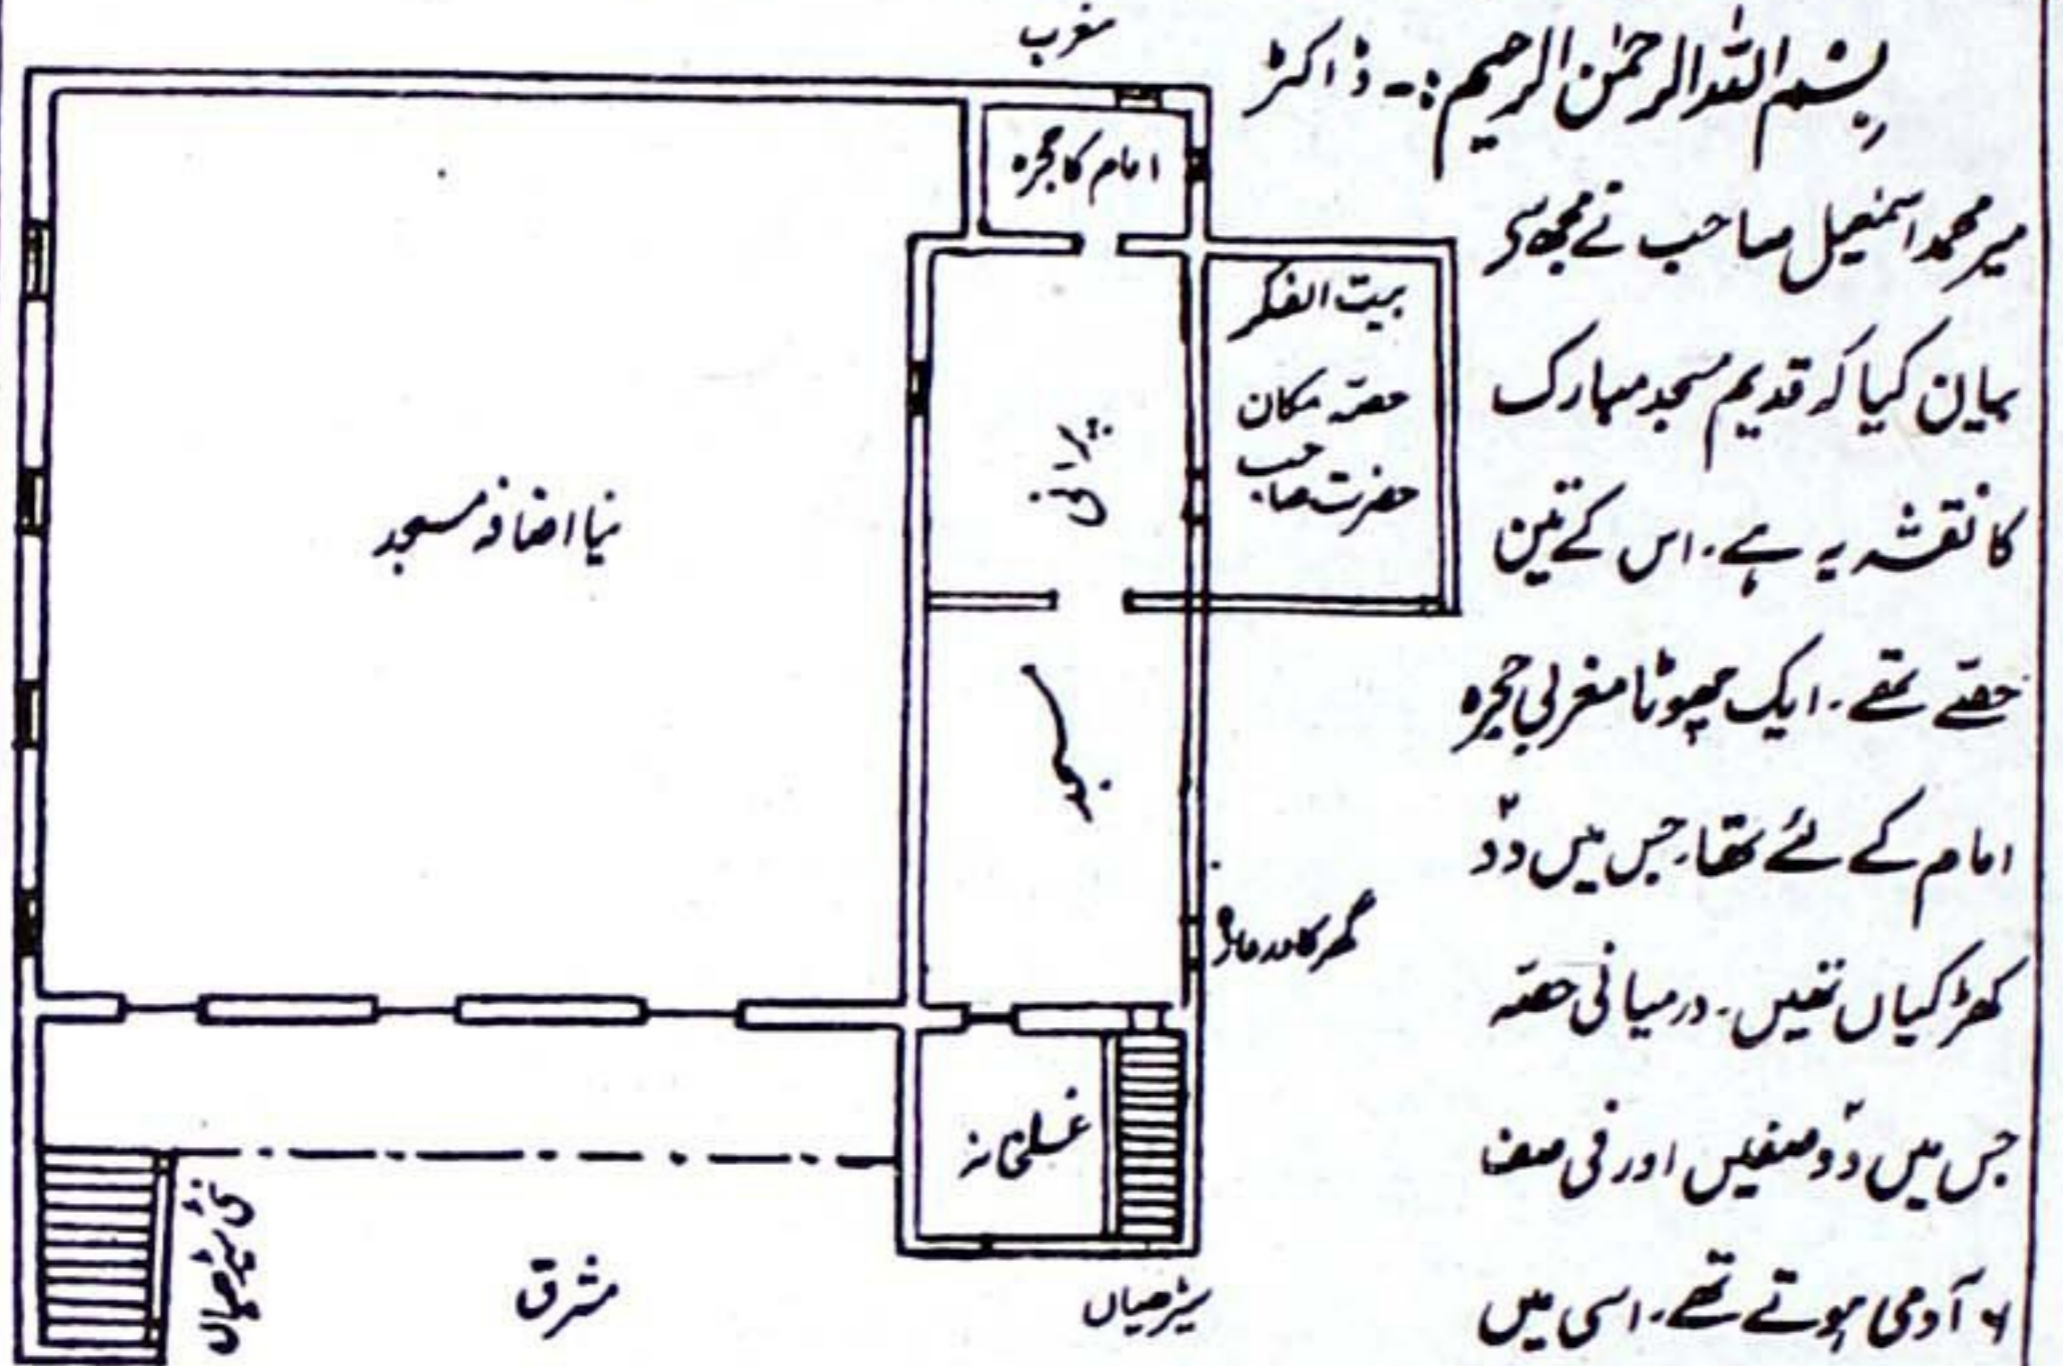 بسم اللہ الرحمٰن الرحیم :۔ ڈاکٹر
میر محمد اسمٰعیل صاحب نے مجھ سے
بیان کیا کہ قدیم مسجد مبارک
کا نقشہ یہ ہے۔ اس کے تین
حصّے تھے۔ ایک چھوٹا مغربی حجرہ
امام کے لئے تھا، جس میں دوؔ
کھڑکیاں تھیں۔ درمیانی حصّہ
جس میں دوؔ صفیں اور فی صف
۶ آدمی ہوتے تھے۔ اسی میں
مغرب
امام کا حجرہ
بیت الفکر
حصّہ مکان
حضرت صاحب
پرانی
مسجد
نیا اضافہ مسجد
گھر کا دروازہ
غسلخانہ
سیڑھیاں
مشرق
نئی سیڑھیاں